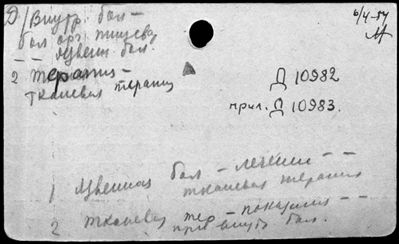 Д/Внутр. бол – б/4-54
бол орг. пищева
– – язвен. бол.
2 терапия –
тканевая терапия
Д 10982
прил. Д 10983.
1 язвенная бол – лечение – –
тканевая терапия
2 тканевая тер – показания –
при внутр бол.